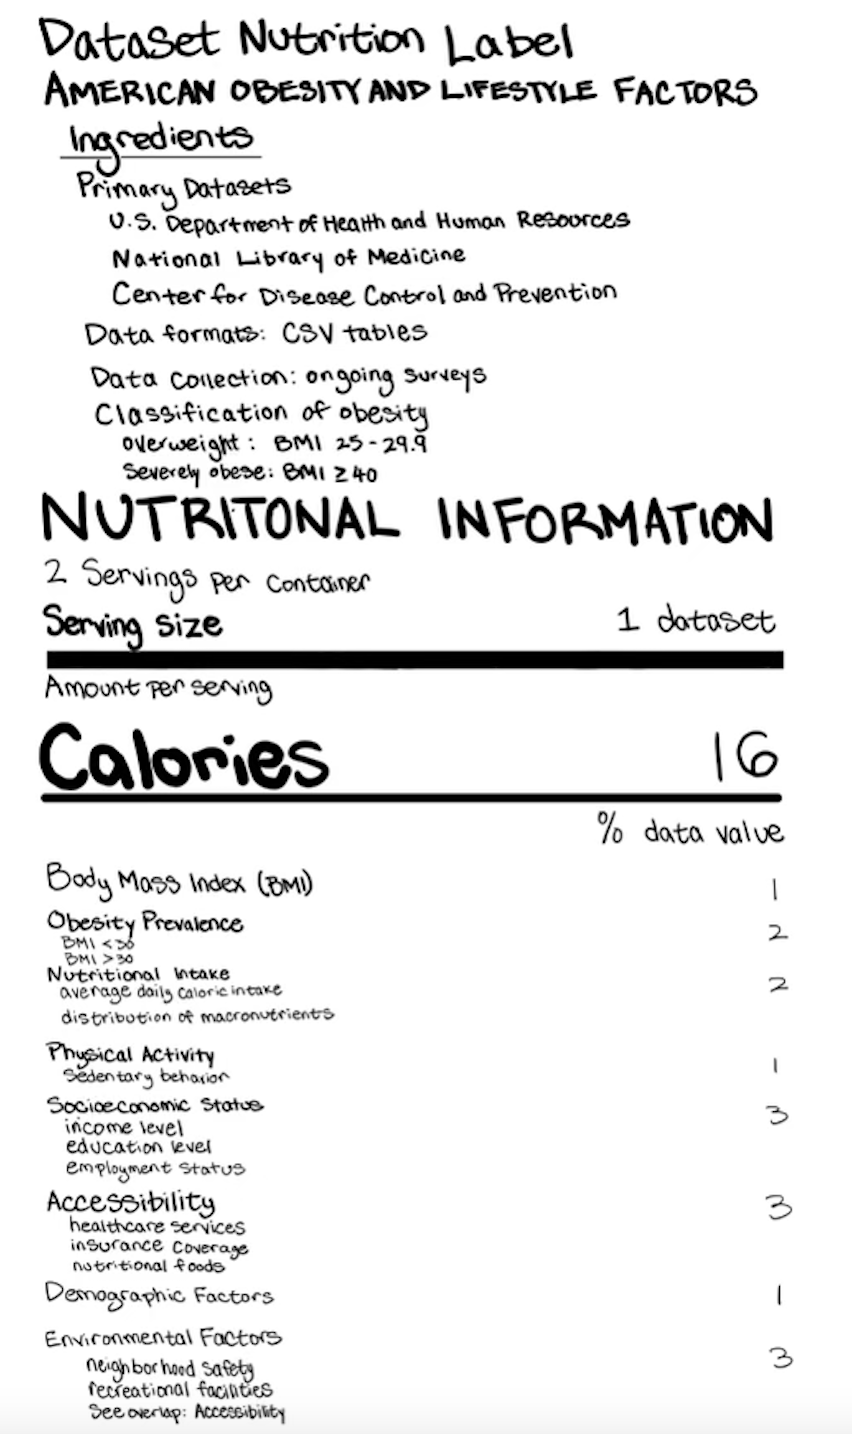 Dataset Nutrition Label
AMERICAN OBESITY AND LIFESTYLE FACTORS
Ingredients
Primary Datasets
U.S. Department of Health and Human Resources
National Library of Medicine
Center for Disease Control and Prevention
Data formats: CSV tables
Data Collection: ongoing surveys
Classification of obesity
overweight: BMI 25-29.9
Severely obese: BMI ≥ 40
NUTRITONAL INFORMATION
2 Servings per container
Serving size 1 dataset
Amount per serving
Calories 16
% data value
Body Mass Index (BMI) 1
Obesity Prevalence 2
BMI <30
BMI >30
Nutritional Intake 2
average daily caloric intake
distribution of macronutrients
Physical Activity 1
Sedentary behavior
Socioeconomic Status 3
income level
education level
employment status
Accessibility 3
healthcare services
insurance coverage
nutritional foods
Demographic Factors 1
Environmental Factors 3
neighborhood safety
recreational facilities
See overlap: Accessibility